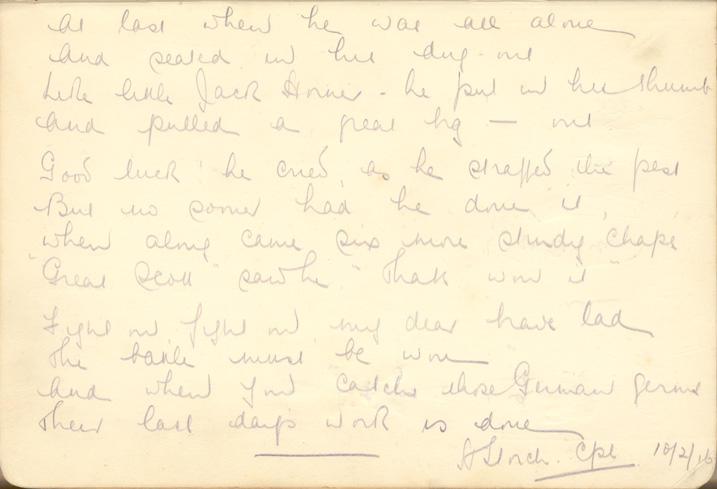 At last when he was all alone
And seated in his dug-out
Like little Jack Horner - he put in his thumb
And pulled a great big — out
Good luck he cried, as he straffed the pest
But no sooner had he done it,
when along came six more sturdy chaps
"Great Scott" saw he "that's won it"
Fight on, fight on, my dear brave lad
The battle must be won
And when you catch those German germs
Their last days work is done
Cpl. 10/2/16